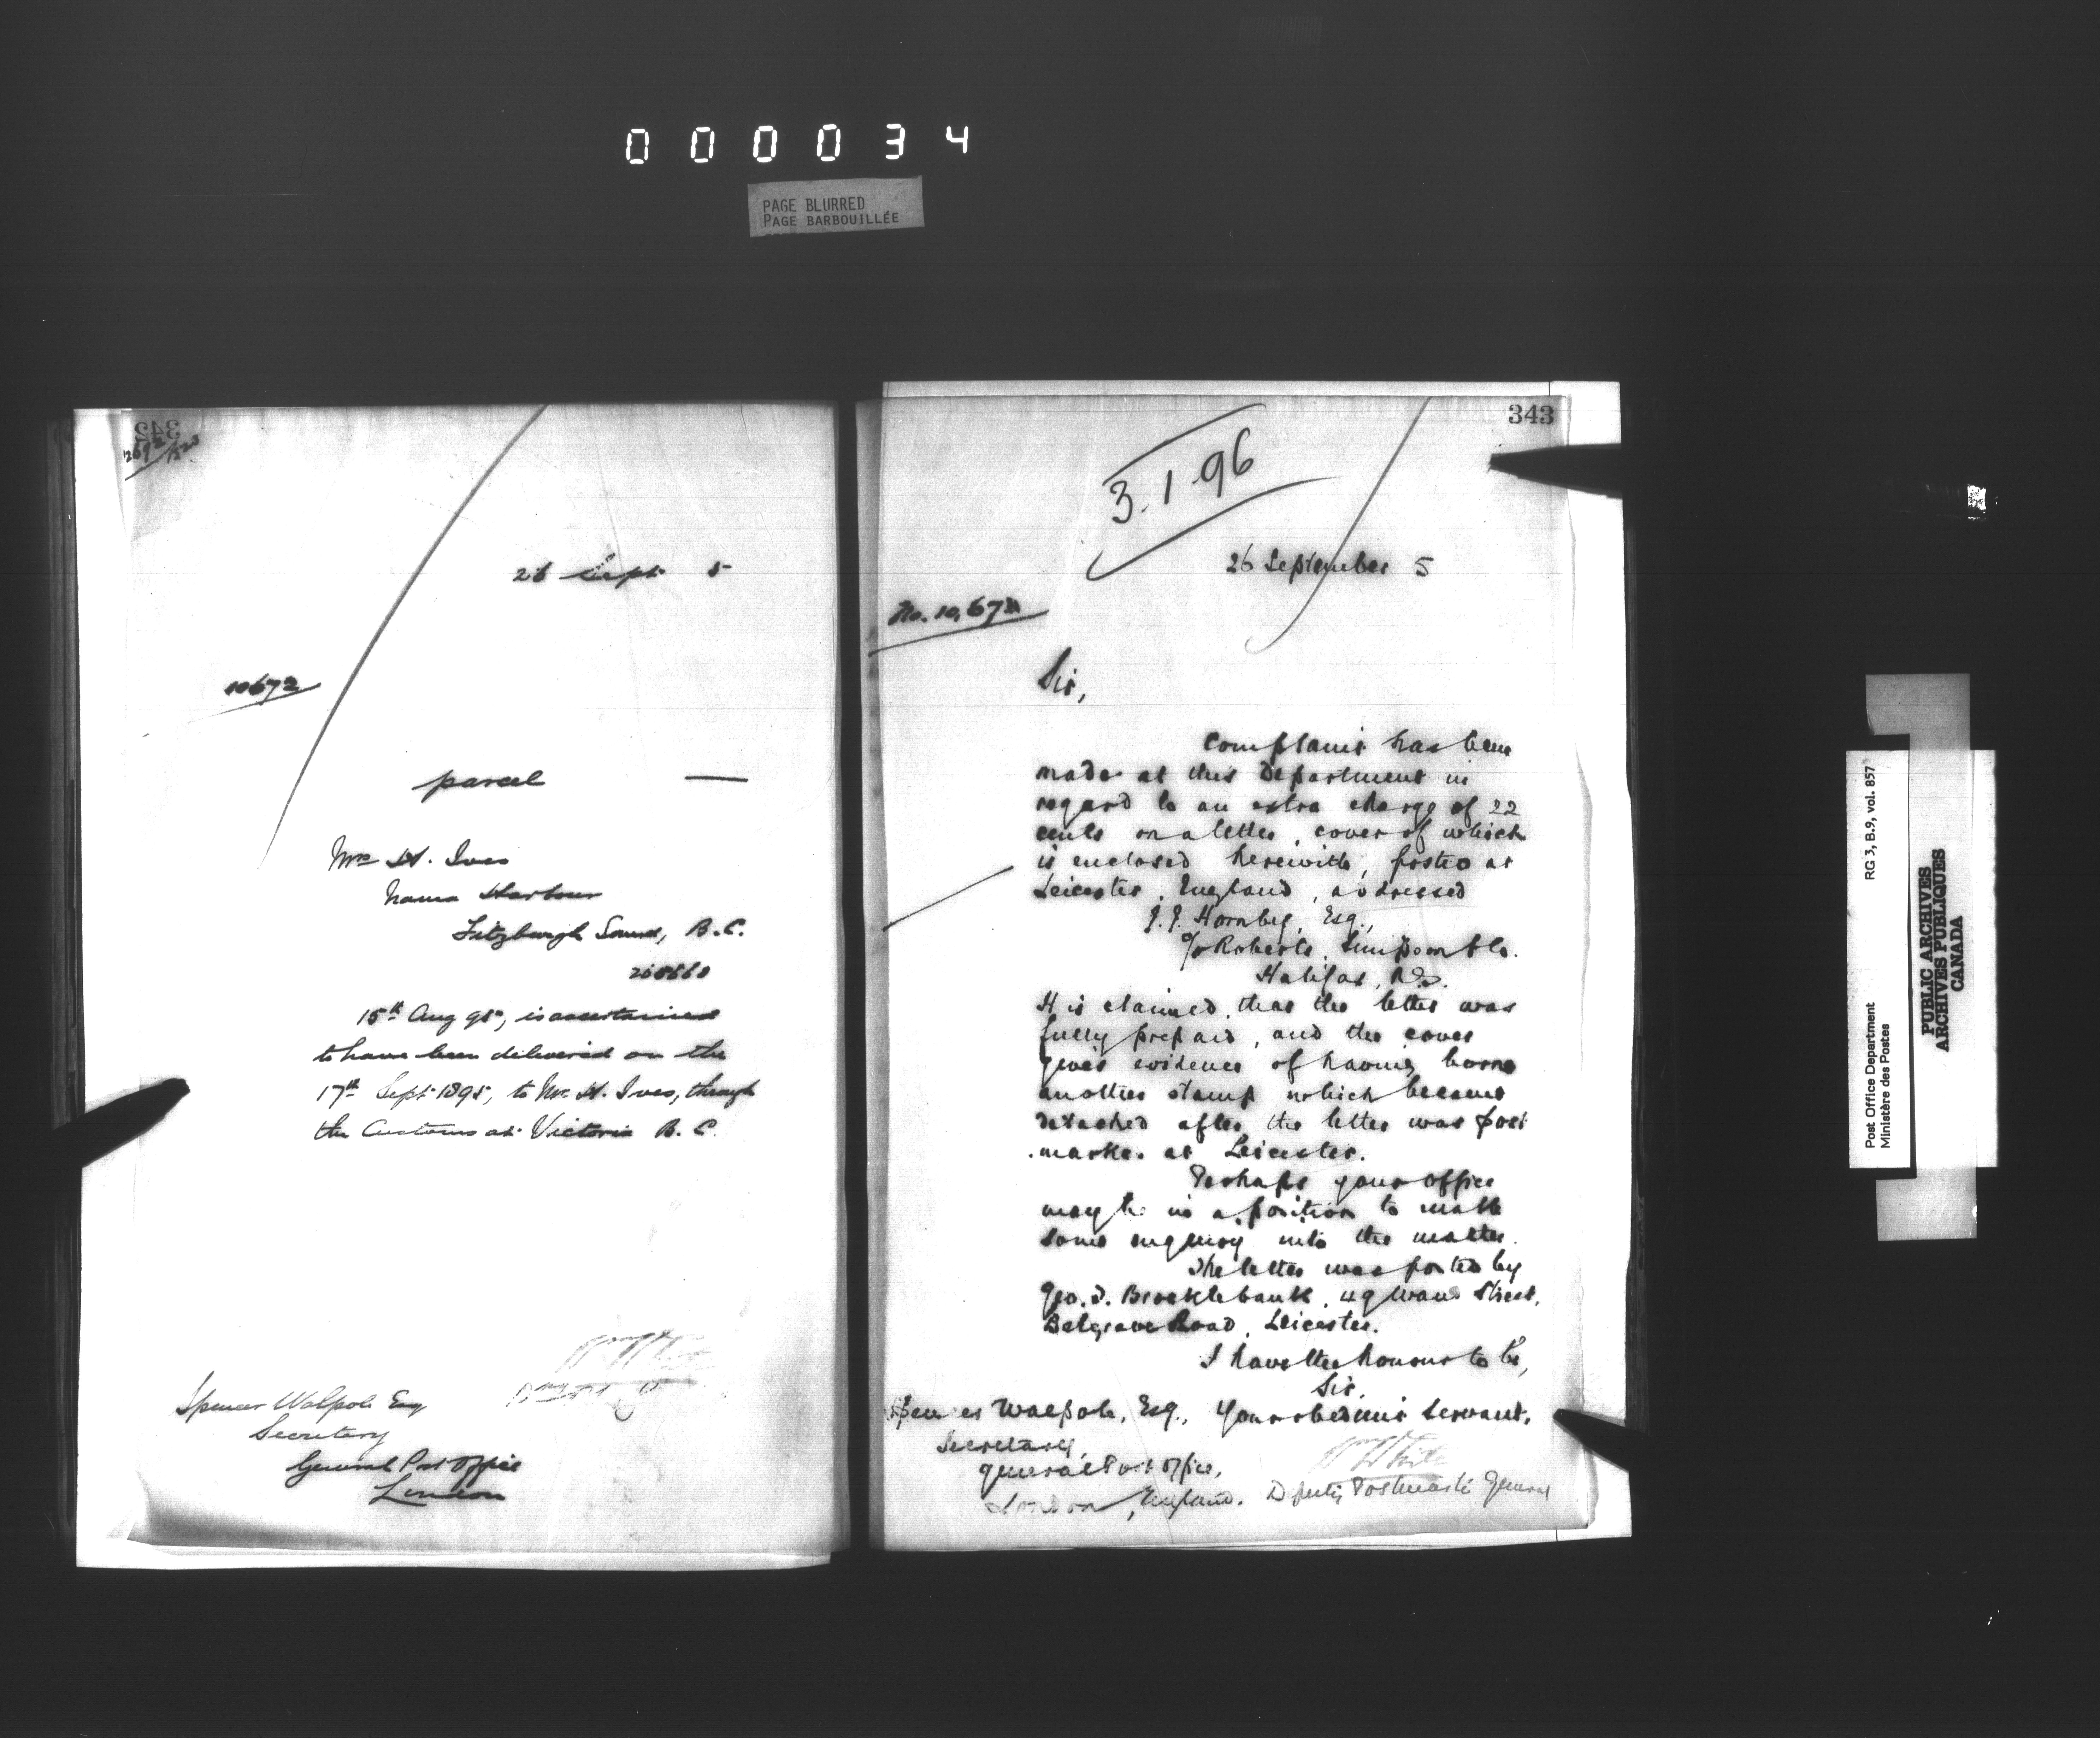 000034
PAGE BLURRED
PAGE BARBOUILLÉE
342
26 Sept 5
10672
parcel —
Mrs H. Ives
Namu Harbour
Fitzhugh Sound, B.C.
15th Aug 95, is ascertained
to have been delivered on the
17th Sept 1895, to Mr H. Ives, through
the Customs at Victoria B.C.
Spencer Walpole Esq
Secretary
General Post Office
London
343
3.1.96
26 September 5
No. 10,672
Sir,
Complaint has been
made at this Department in
regard to an extra charge of 22
cents on a letter, cover of which
is enclosed herewith, posted at
Leicester, England, addressed
J. J. Hornby, Esq.,
c/o Roberts, Simpson & Co.
Halifax, N.S.
It is claimed that the letter was
fully prepaid, and the cover
gives evidence of having borne
another stamp which became
detached after the letter was post
marked at Leicester.
Perhaps your office
may be in a position to make
some enquiry into the matter.
The letter was posted by
Geo. J. Brocklebank, 49 Street,
Belgrave Road, Leicester.
I have the honour to be,
Sir,
Spencer Walpole, Esq., Your obedient Servant,
Secretary,
General Post Office,
London, England. Deputy Postmaster General
Post Office Department RG 3, B.9, vol. 857
Ministère des Postes
PUBLIC ARCHIVES
ARCHIVES PUBLIQUES
CANADA